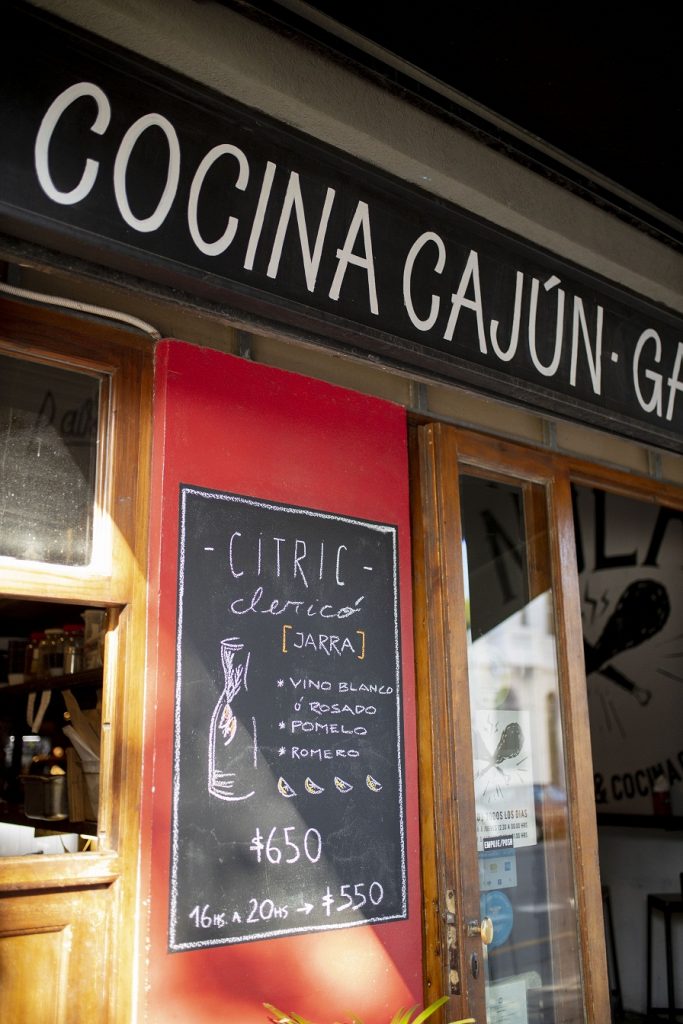 COCINA CAJÚN · GA
- CITRIC -
clericó
[JARRA]
* VINO BLANCO
ó ROSADO
* POMELO
* ROMERO
$650
16HS A 20HS → $550
NOLA
& COCINA
TODOS LOS DÍAS
EMPUJE/PUSH